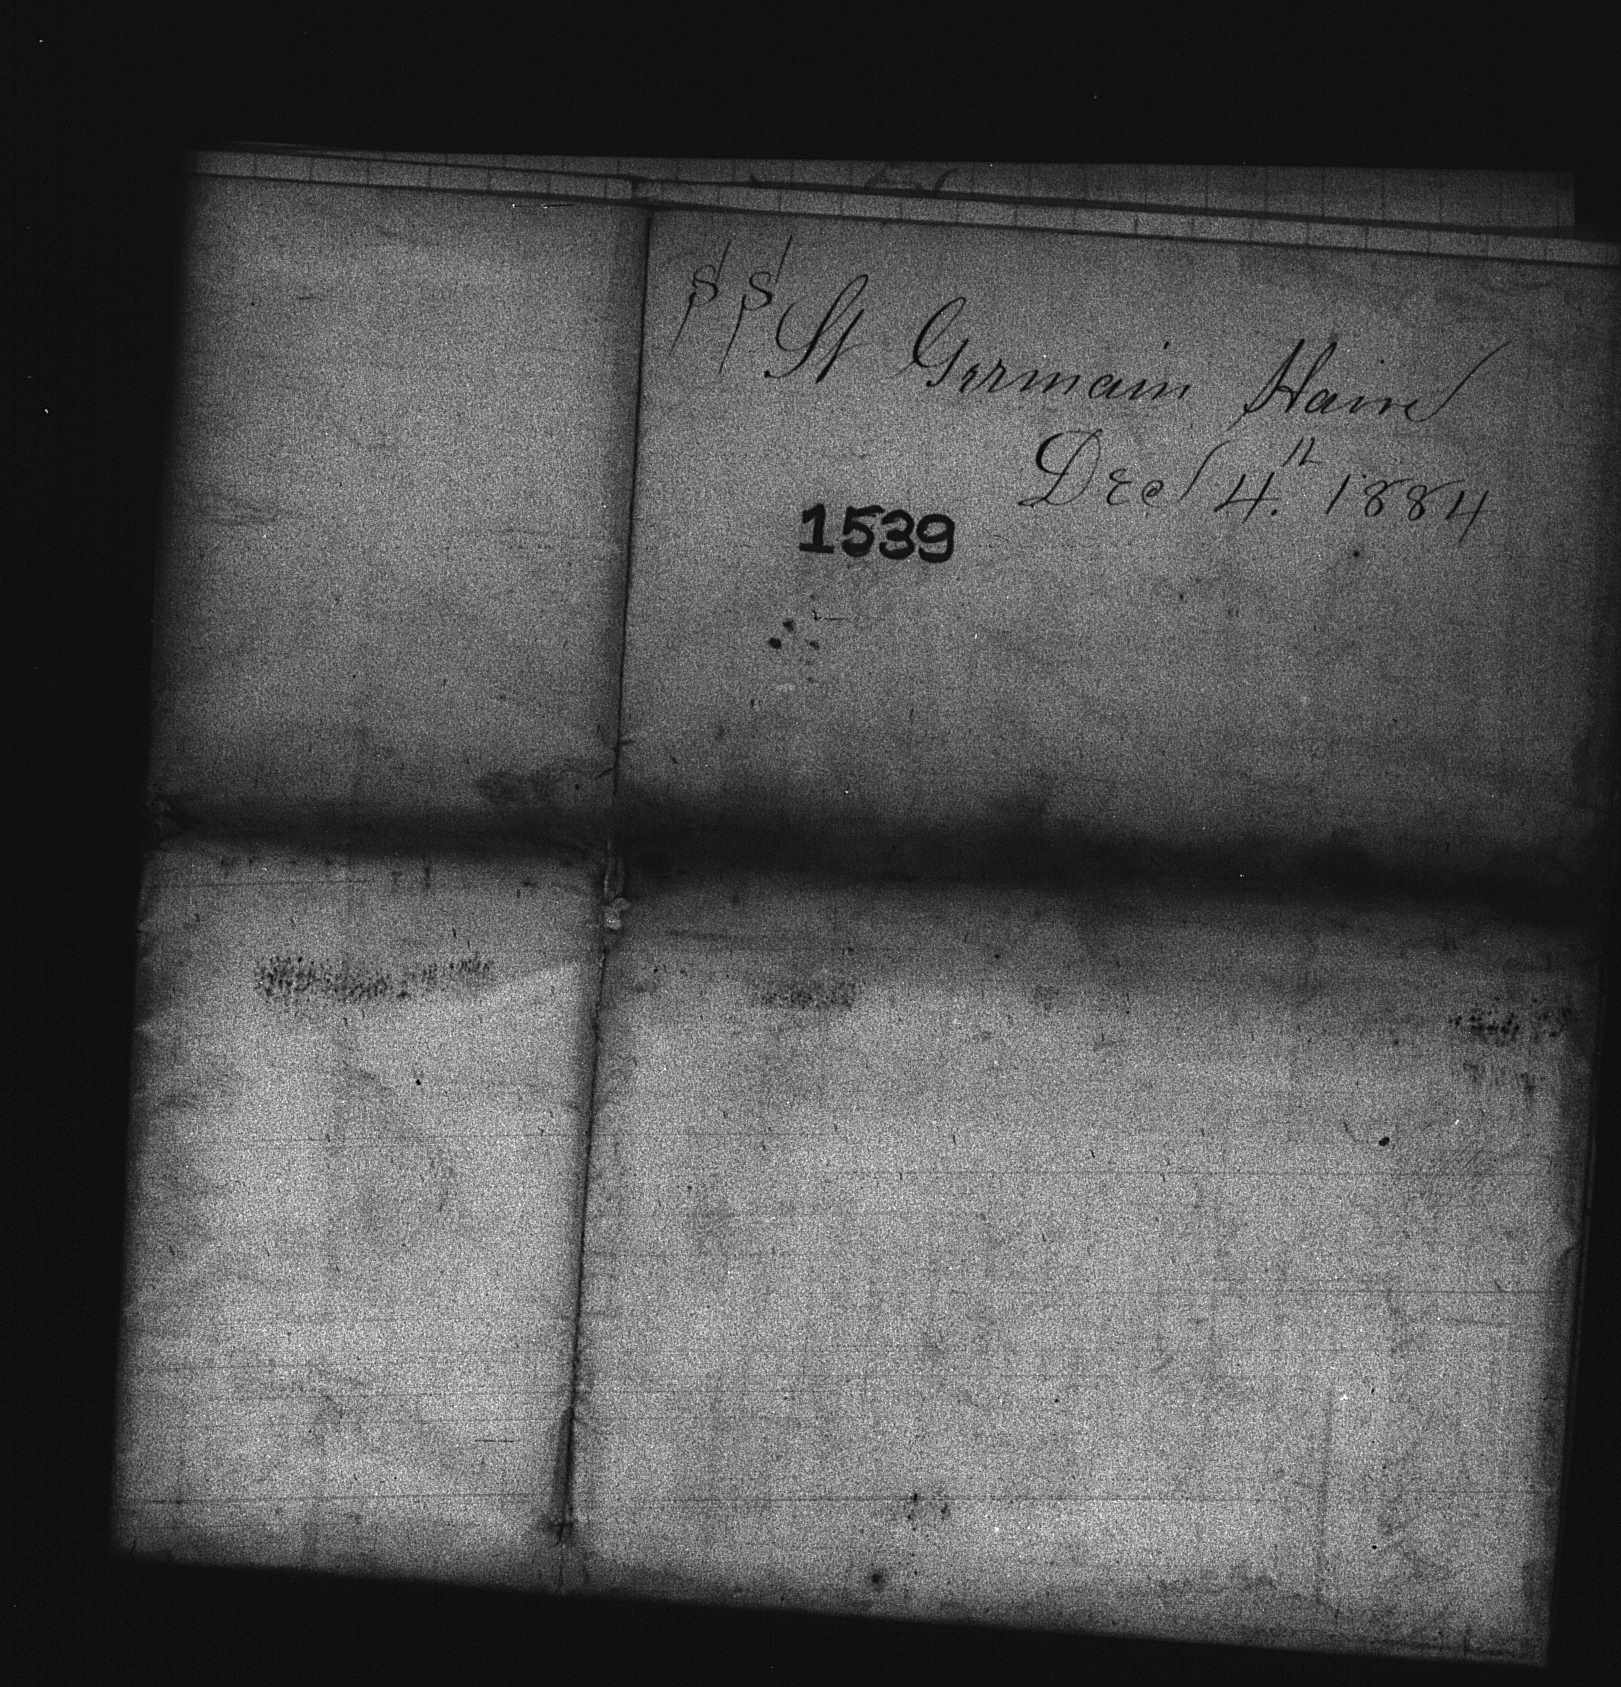 SS St Germain Haire
Decr 4th 1884
1539